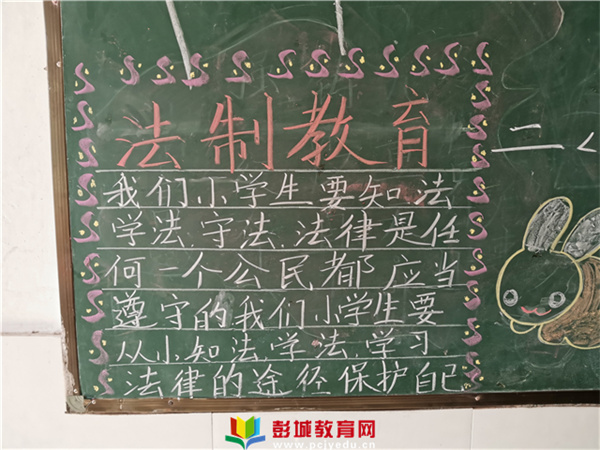 法制教育
我们小学生要知法
学法、守法、法律是任
何一个公民都应当
遵守的我们小学生要
从小知法、学法、学习、
法律的途径保护自己
二
彭城教育网
www.pcjyedu.cn